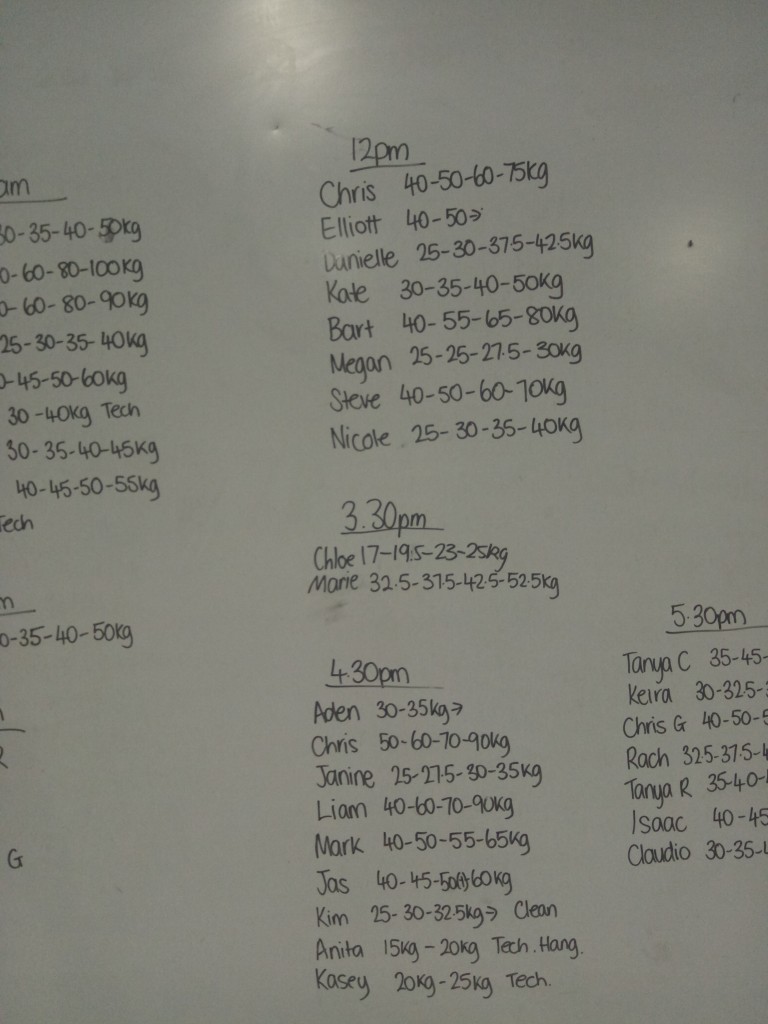 am
30-35-40-50kg
0-60-80-100kg
0-60-80-90kg
25-30-35-40kg
0-45-50-60kg
30-40kg Tech
30-35-40-45kg
40-45-50-55kg
Tech
m
0-35-40-50kg
G
12pm
Chris 40-50-60-75kg
Elliott 40-50→
Danielle 25-30-37.5-42.5kg
Kate 30-35-40-50kg
Bart 40-55-65-80kg
Megan 25-25-27.5-30kg
Steve 40-50-60-70kg
Nicole 25-30-35-40kg
3.30pm
Chloe 17-19.5-23-25kg
Marie 32.5-37.5-42.5-52.5kg
4.30pm
Aden 30-35kg→
Chris 50-60-70-90kg
Janine 25-27.5-30-35kg
Liam 40-60-70-90kg
Mark 40-50-55-65kg
Jas 40-45-50(f)-60kg
Kim 25-30-32.5kg→ Clean
Anita 15kg-20kg Tech.Hang.
Kasey 20kg-25kg Tech.
5.30pm
Tanya C 35-45-
Keira 30-32.5-
Chris G 40-50-5
Rach 32.5-37.5-4
Tanya R 35-40-
Isaac 40-45
Claudio 30-35-4